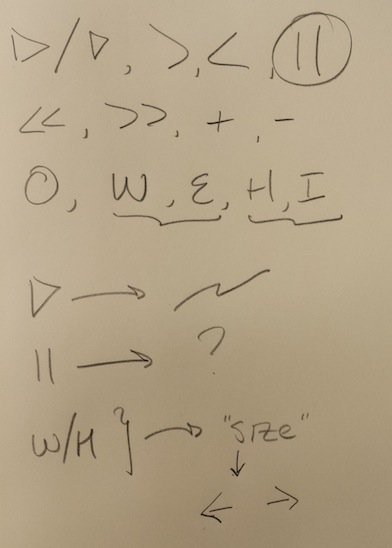 ▷/▷, >, <, ||
<<, >>, +, -
O, W, E, H, I
▷ → ~
|| → ?
W/H } → "SIZE"
↓
← →